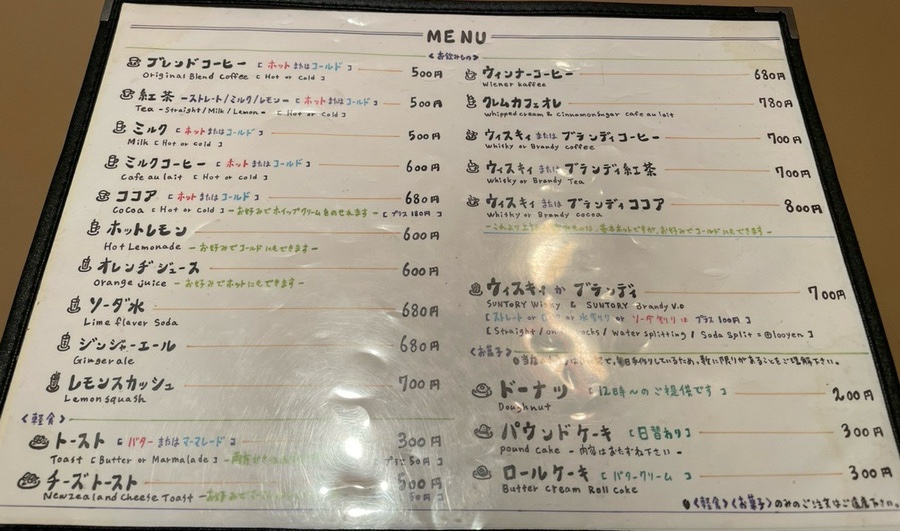 MENU
<お飲みもの>
ブレンドコーヒー [ ホットまたはコールド ] 500円
Original Blend Coffee [ Hot or Cold ]
紅茶 -ストレート/ミルク/レモン- [ ホットまたはコールド ] 500円
Tea -Straight/Milk/Lemon- [ Hot or Cold ]
ミルク [ ホットまたはコールド ] 500円
Milk [ Hot or Cold ]
ミルクコーヒー [ ホットまたはコールド ] 600円
Cafe au lait [ Hot or Cold ]
ココア [ ホットまたはコールド ] 680円
Cocoa [ Hot or Cold ] -お好みでホイップクリームをのせれます- [ プラス 180円 ]
ホットレモン 600円
Hot Lemonade -お好みでコールドにもできます-
オレンヂジュース 600円
orange juice -お好みでホットにもできます-
ソーダ水 680円
Lime flaver Soda
ジンジャーエール 680円
Gingerale
レモンスカッシュ 700円
Lemonsquash
<軽食>
トースト [ バターまたはマーマレード ] 300円
Toast [ Butter or Marmalade ] 50円 ]
チーズトースト 500円
Newzealand Cheese Toast -お好みで 50円 ]
ウィンナーコーヒー 680円
wiener kaffee
クレムカフェオレ 780円
whipped cream & cinnamonsugar cafe au lait
ウィスキィまたはブランディコーヒー 700円
whisky or Brandy coffee
ウィスキィまたはブランディ紅茶 700円
whisky or Brandy Tea
ウィスキィまたはブランディココア 800円
whisky or Brandy cocoa
-これより上 は、基本ホットですが、お好みでコールドにもできます-
ウィスキィか ブランディ 700円
SUNTORY & SUNTORY Brandy V.O
[ ストレート or or 水割り or ソーダ割りは プラス100円 ]
[ Straight / on rocks / water splitting / Soda Split = ]
<お菓子> 毎日手作りしているため、数に限りがあることをご理解下さい。
ドーナツ [ 12時〜のご提供です ] 200円
Doughnut
パウンドケーキ [ 日替わり ] 300円
pound cake -内容はおたずね下さい-
ロールケーキ [ バタークリーム ] 300円
Butter Cream Roll Cake
<軽食><お菓子>のみのご注文はご遠慮下さい。